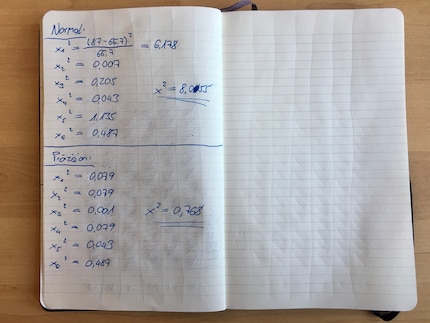 Normal:
x₁² = (87-66.7)² / 66.7 = 6,178
x₂² = 0,007
x₃² = 0,205
x₄² = 0,043
x² = 8,055
x₅² = 1,135
x₆² = 0,487
Präzision:
x₁² = 0,079
x₂² = 0,079
x₃² = 0,001
x² = 0,768
x₄² = 0,079
x₅² = 0,043
x₆² = 0,487